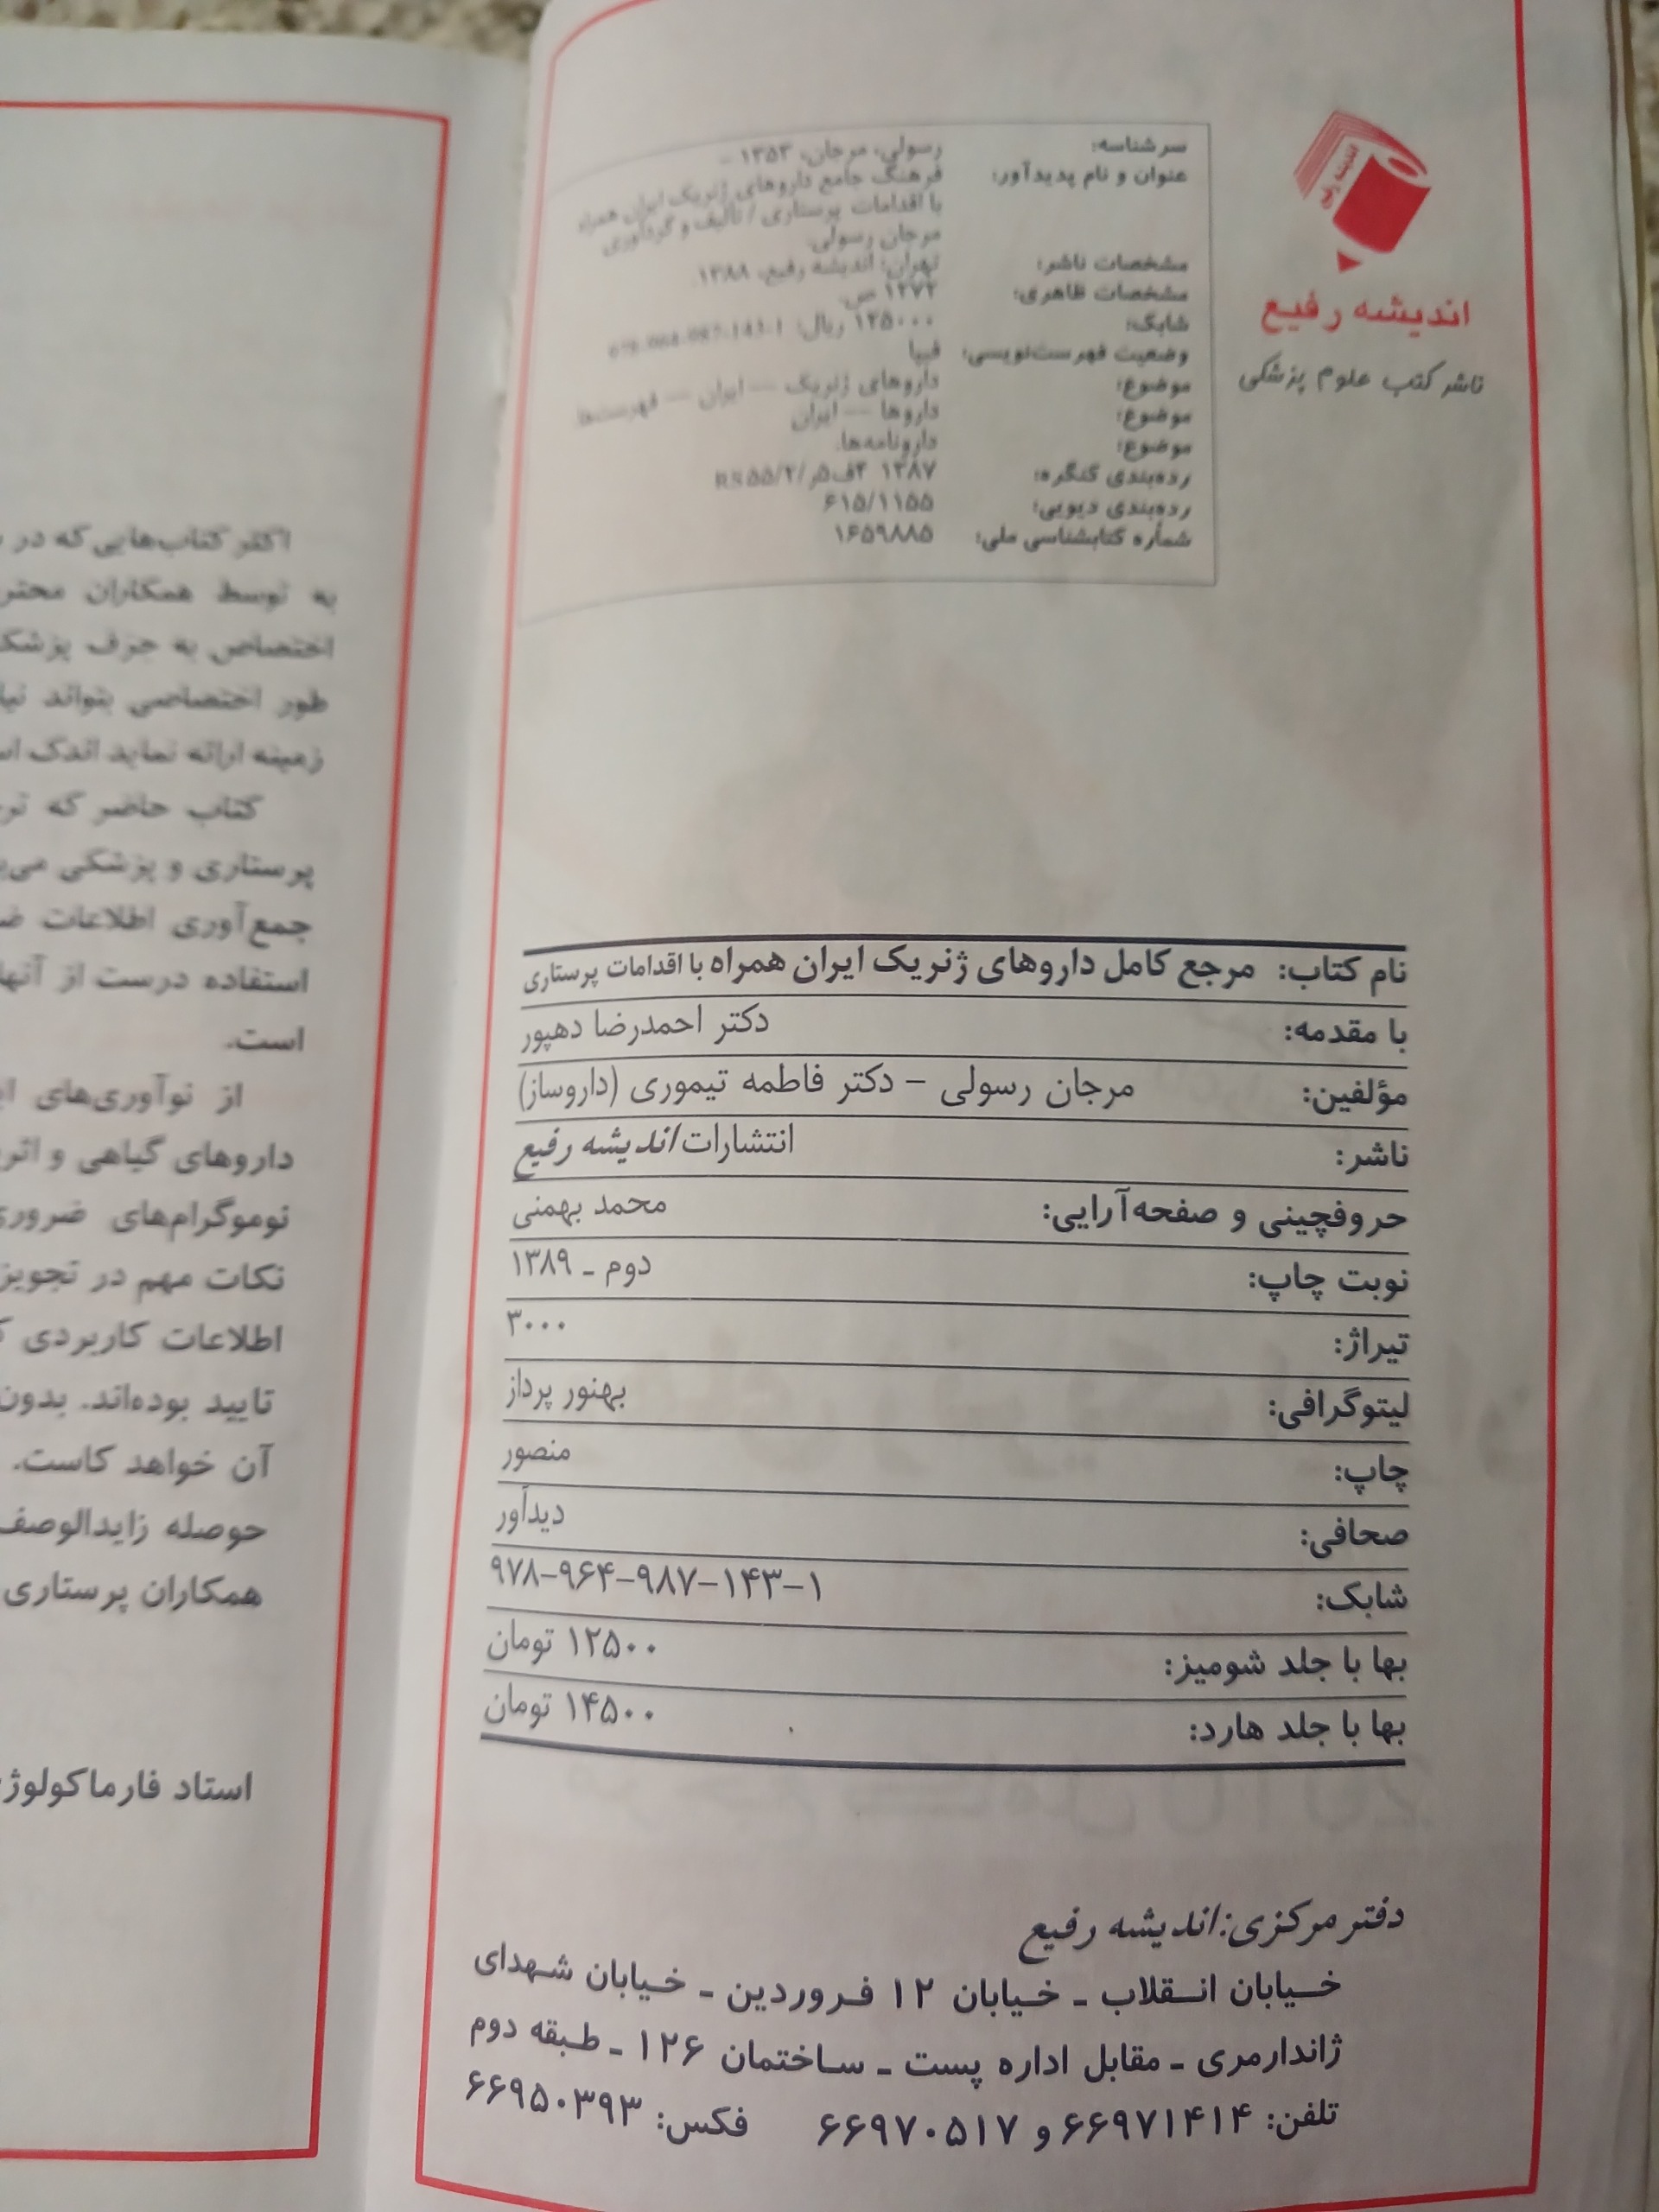 اندیشه رفیع
ناشر کتب علوم پزشکی
سرشناسه: رسولی، مرجان، ۱۳۵۳ -
عنوان و نام پدیدآور: فرهنگ جامع داروهای ژنریک ایران همراه
با اقدامات پرستاری / تألیف و گردآوری
مرجان رسولی.
مشخصات ناشر: تهران: اندیشه رفیع، ۱۳۸۸.
مشخصات ظاهری: ۱۲۷۲ ص.
شابک: ۱۲۵۰۰۰ ریال: 978-964-987-143-1
وضعیت فهرست‌نویسی: فیپا
موضوع: داروهای ژنریک -- ایران -- فهرست‌ها.
موضوع: داروها -- ایران
موضوع: دارونامه‌ها.
رده‌بندی کنگره: ۱۳۸۷ ۴ف۵ر/RS۵۵/۲
رده‌بندی دیویی: ۶۱۵/۱۱۵۵
شماره کتابشناسی ملی: ۱۶۵۹۸۸۵
نام کتاب: مرجع کامل داروهای ژنریک ایران همراه با اقدامات پرستاری
با مقدمه: دکتر احمدرضا دهپور
مؤلفین: مرجان رسولی – دکتر فاطمه تیموری (داروساز)
ناشر: انتشارات اندیشه رفیع
حروفچینی و صفحه‌آرایی: محمد بهمنی
نوبت چاپ: دوم ـ ۱۳۸۹
تیراژ: ۳۰۰۰
لیتوگرافی: بهنور پرداز
چاپ: منصور
صحافی: دیدآور
شابک: ۹۷۸-۹۶۴-۹۸۷-۱۴۳-۱
بها با جلد شومیز: ۱۲۵۰۰ تومان
بها با جلد هارد: ۱۴۵۰۰ تومان
دفتر مرکزی: اندیشه رفیع
خیابان انقلاب ـ خیابان ۱۲ فروردین ـ خیابان شهدای
ژاندارمری ـ مقابل اداره پست ـ ساختمان ۱۲۶ ـ طبقه دوم
تلفن: ۶۶۹۷۱۴۱۴ و ۶۶۹۷۰۵۱۷ فکس: ۶۶۹۵۰۳۹۳
اکثر کتاب‌هایی که در
به توسط همکاران
اختصاص به حرف
طور اختصاصی بتواند
زمینه ارائه نماید اندک
کتاب حاضر که
پرستاری و پزشکی
جمع‌آوری اطلاعات
استفاده درست از آنها
است.
از نوآوری‌های
داروهای گیاهی و
نوموگرام‌های
نکات مهم در تجویز
اطلاعات کاربردی
تایید بوده‌اند. بدون
آن خواهد کاست.
حوصله زایدالوصف
همکاران پرستاری
استاد